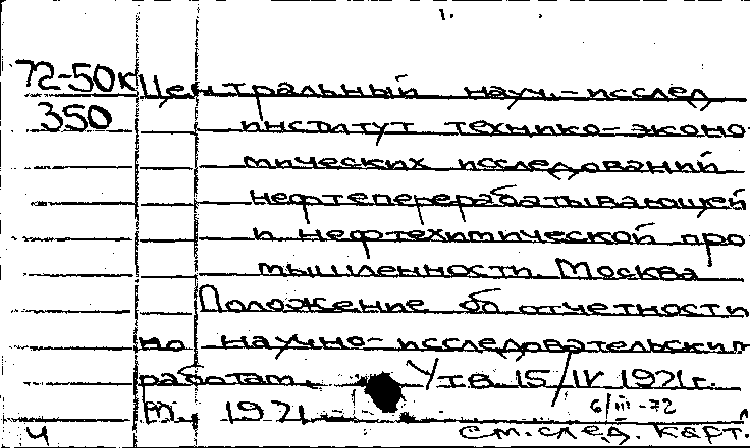 1.
72-50к Центральный науч.-исслед
350 институт технико-эконо
мических исследований
нефтеперерабатывающей
и нефтехимической про
мышленности. Москва
Положение об отчетности
по научно-исследовательским
работам. Утв. 15/IV 1971г.
М., 1971
6/III-72
Ч см. след. карт.